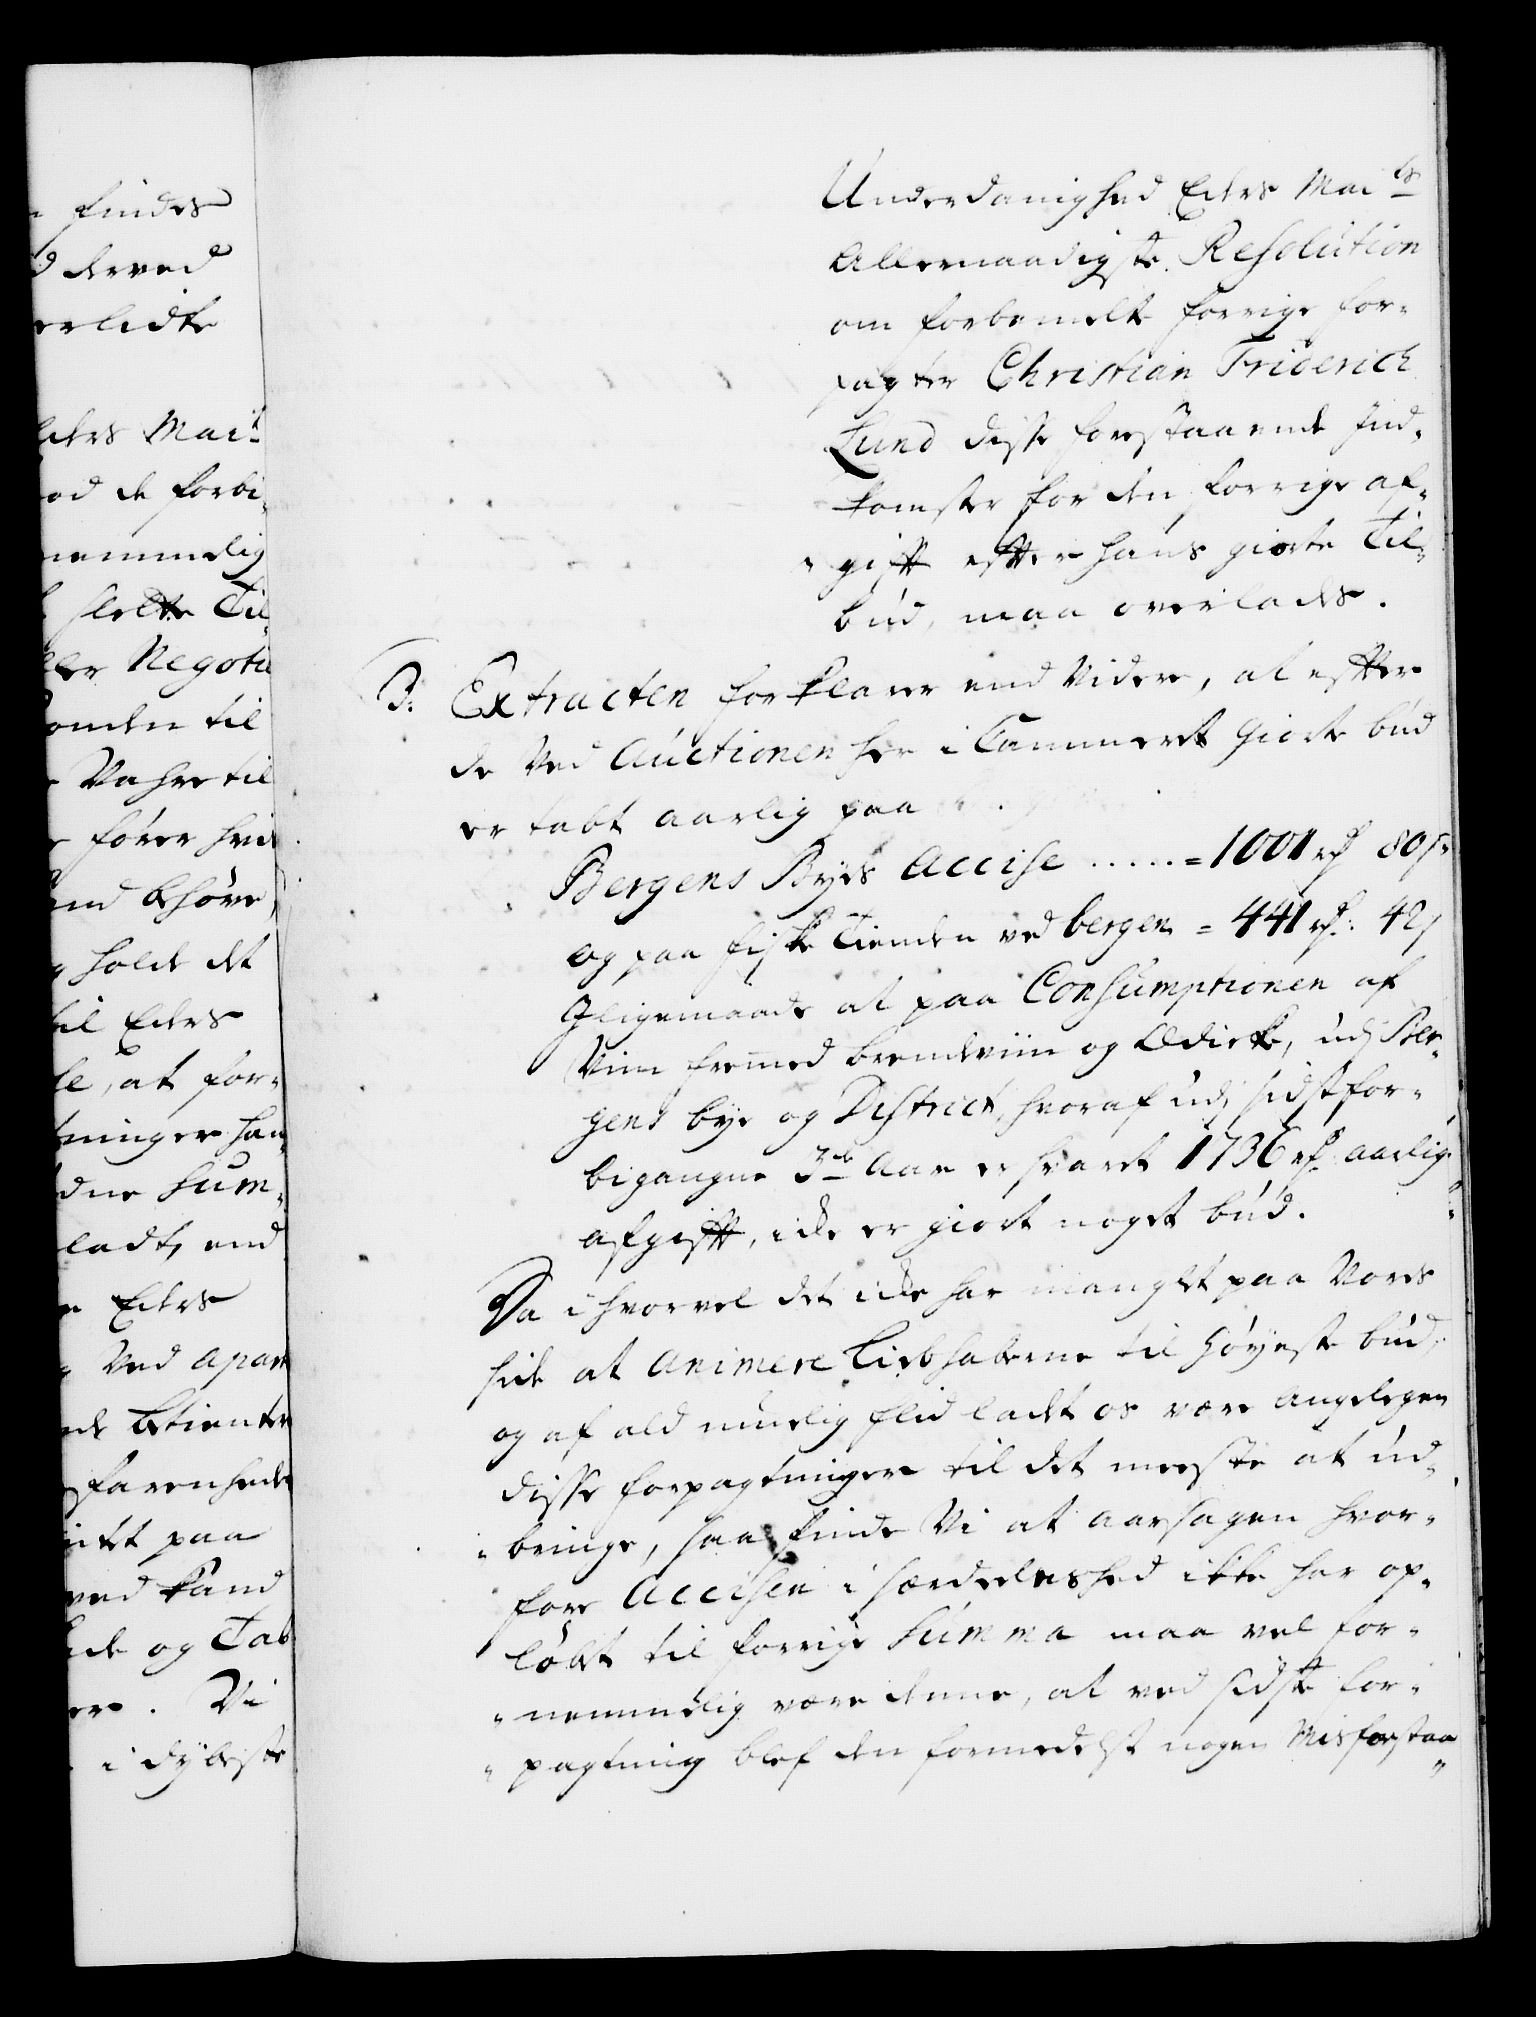 findes
derved
erlidte
Eders Mait
od de forbi¬
nemmelig
slette Til
ler Negotie
onden til
Vahre til
fører hvi
end behøve,
holde det
til Eders
le, at for¬
tninger han
dne Sum¬
ladt, end
Eders
Ved apart
de betiente
farenhede
paa
ved kand
de og Tab
er. Vi
i dybeste
Underdanighed Eders Maits
Allernaadigste Resolution
om forbemelte forrige for¬
pagter Christian Friderich
Lund disse forestaaende Ind¬
komster for den forrige af¬
gift effter hans giorte Til¬
bud, maa overlades.
3: Extracten forklarer end Videre, at effter
de Ved Auctionen her i Cammeret giorte bud
er tabt aarlig paa
Bergens Byes Accise ..... = 1001 rd 80 s
og paa fiske Tienden ved bergen = 441 rd: 42 s
Iligemaade at paa Consumptionen af
Viin fremmed brendeviin og Ædicke, udj Ber¬
gens bye og District, hvoraf udj sidst for¬
bigangne 3de Aar er svaret 1736 rd aarlig
afgifft, icke er giort noget bud.
Da i hvorvel det icke har manglet paa Vores
side at animere Liebhaberne til høyeste bud,
og af ald muelig flid ladet os være angelegen
disse forpagtninger til det meeste at ud¬
bringe, saa finde Vi at aarsagen hvor¬
fore Accisen i særdeleshed ikke har op¬
løbet til forrige Summa maa vel for¬
nemmelig være denne, at ved sidste for¬
pagtning blef den formedelst nogen Misforstaa